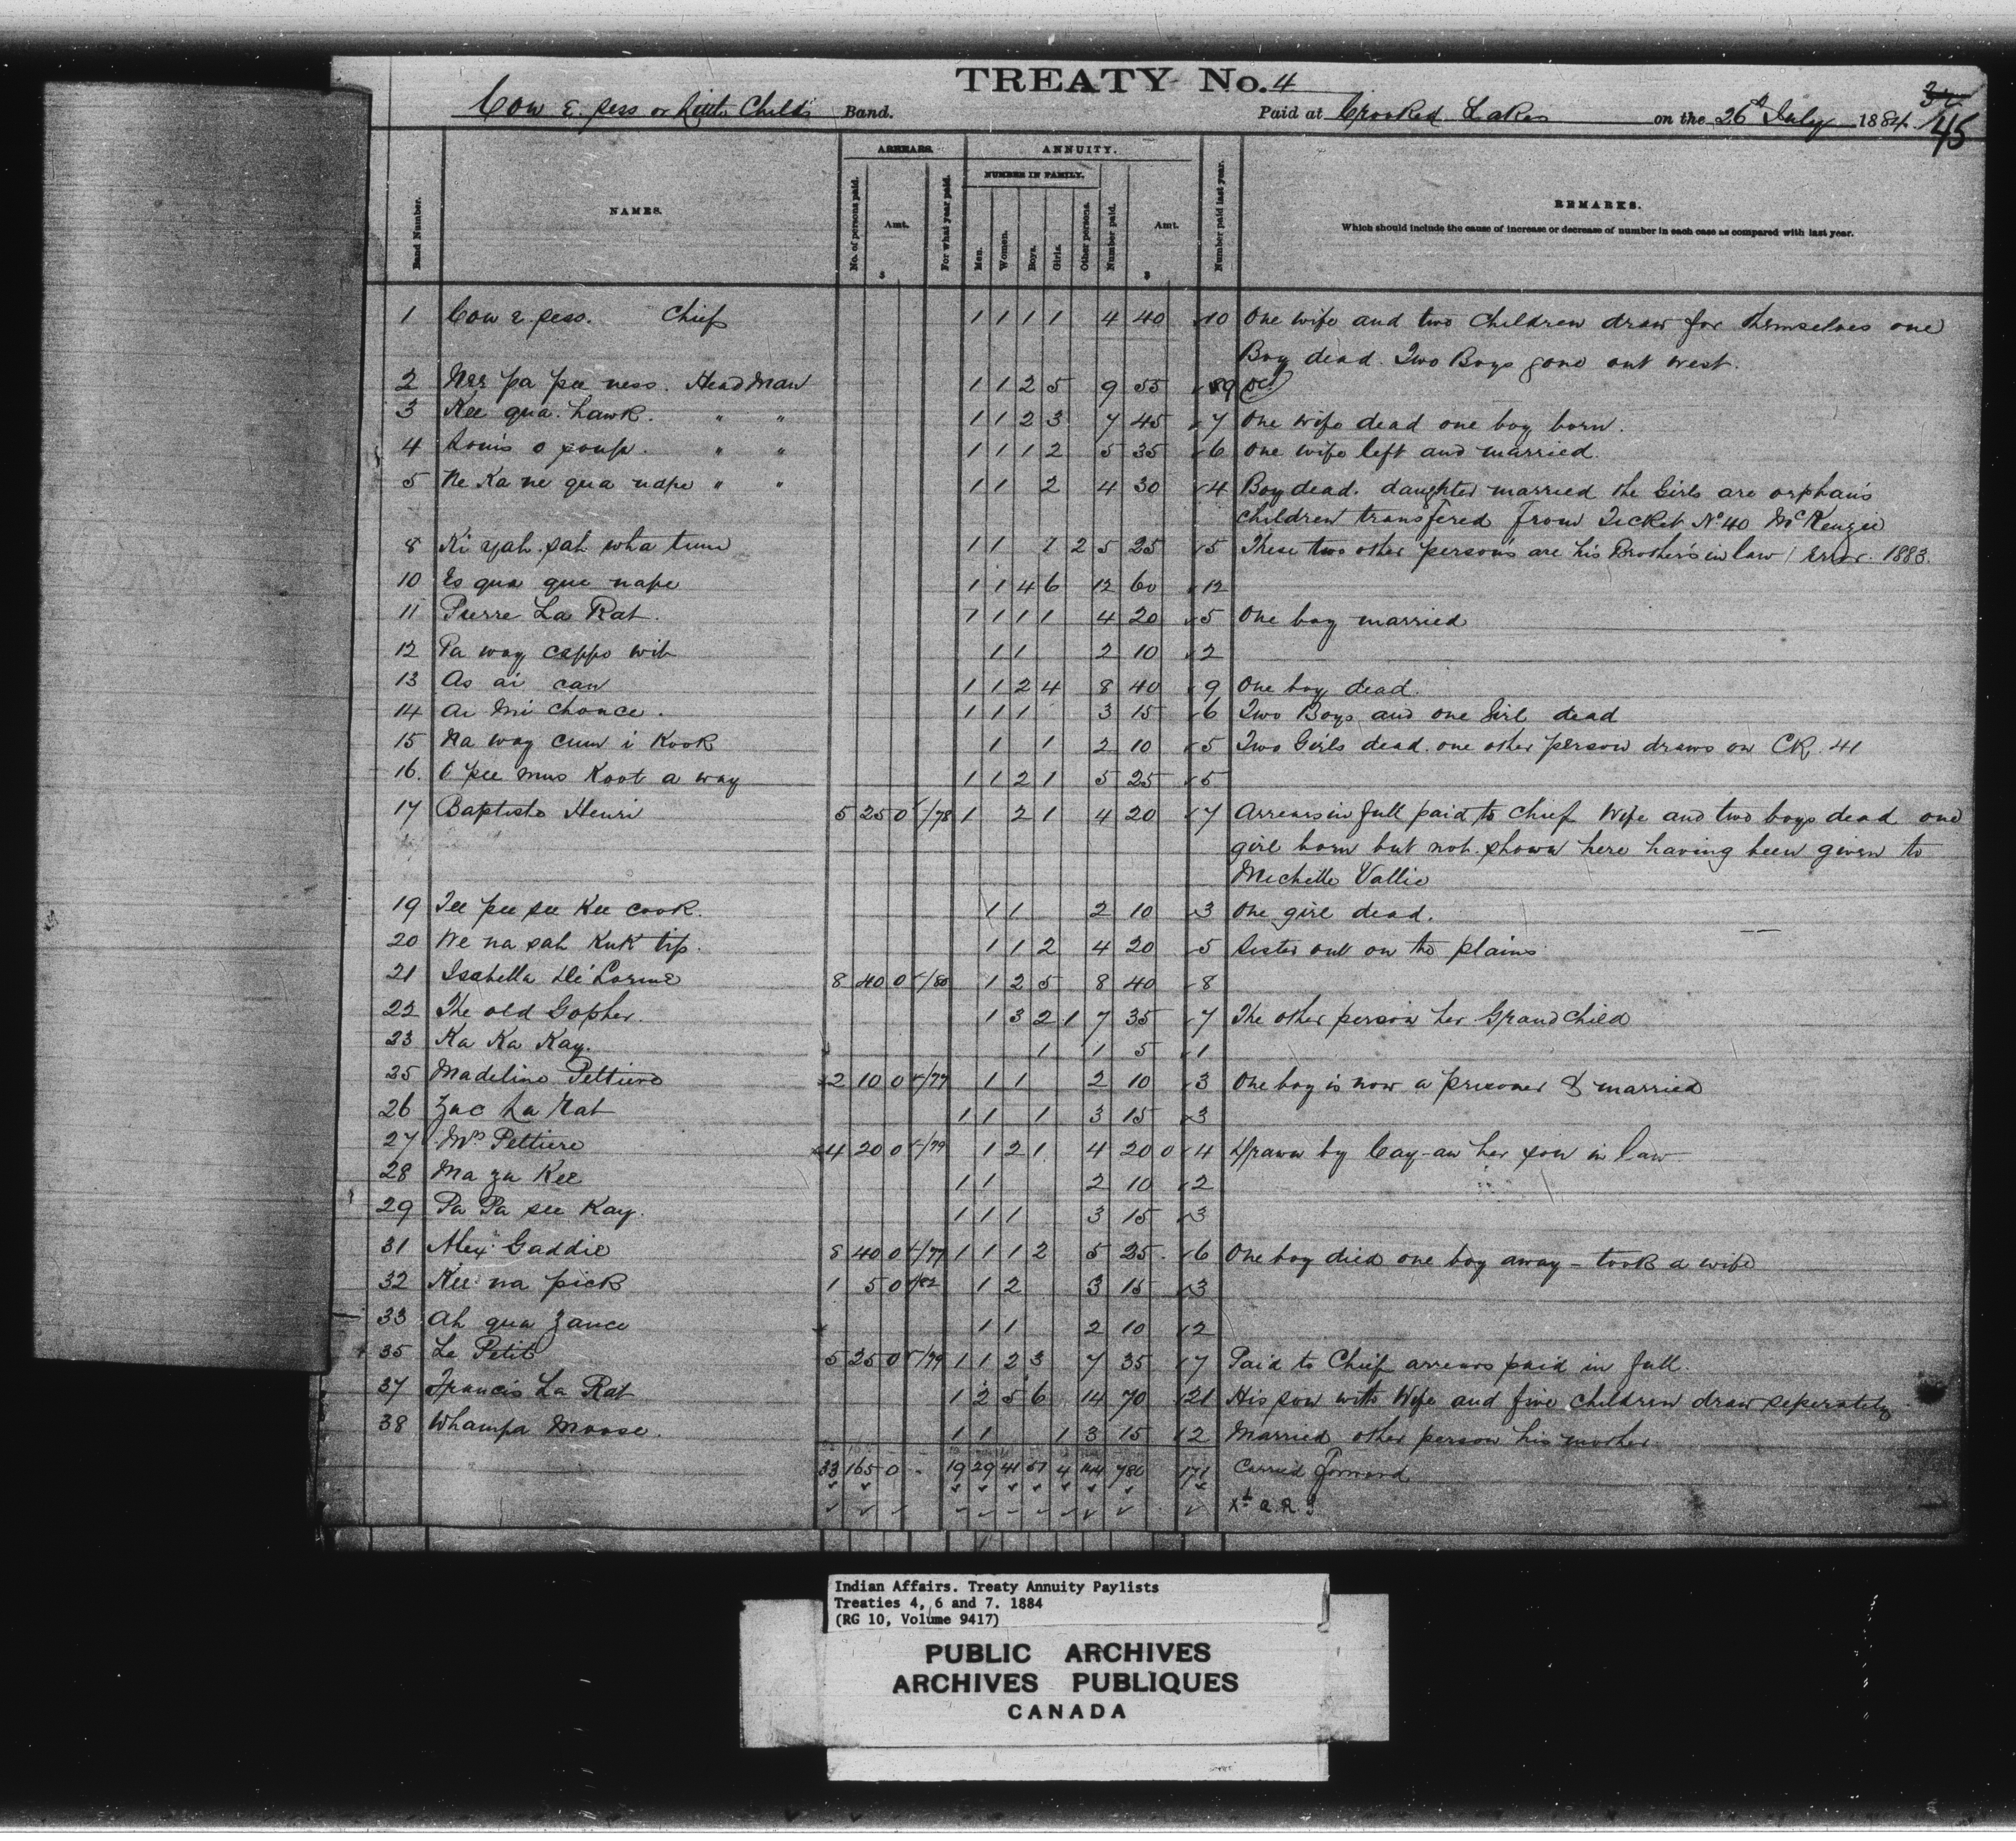 TREATY No. 4
34
45
Cow E. pess or Little Child's Band. Paid at Crooked Lakes on the 26th July 1884
ARREARS. ANNUITY.
NUMBER IN FAMILY.
Band Number. NAMES. No. of persons paid. Amt. $ For what year paid. Men. Women. Boys. Girls. Other persons. Number paid. Amt. $ Number paid last year. REMARKS.
Which should include the cause of increase or decrease of number in each case as compared with last year.
1 Cow e pess. Chief 1 1 1 1 4 40 10 One wife and two children draw for themselves one
Boy dead. Two Boys gone out west.
2 Nee pa pee ness. Head Man 1 1 2 5 9 55 9
3 Kee qua. hawk. " " 1 1 2 3 7 45 7 One wife dead one boy born.
4 Louis o poup. " " 1 1 1 2 5 35 6 One wife left and married.
5 Ne Ka ne qua nape " " 1 1 2 4 30 4 Boy dead. daughter married the Girls are orphan's
children transfered from Ticket No 40 McKenzie
8 Ki yah. pah wha tum 1 1 1 2 5 25 5 These two other person's are his Brother's in law / Error. 1883.
10 Es qua que nape 1 1 4 6 12 60 12
11 Pierre La Rat. 1 1 1 1 4 20 5 One boy married
12 Pa way cappo wit 1 1 2 10 2
13 As ai can 1 1 2 4 8 40 9 One boy dead.
14 Ai Mi Chonce. 1 1 1 3 15 6 Two Boys and one Girl dead
15 Na way cum i Kook 1 1 2 10 5 Two Girls dead. one other person draws on CK. 41
16. O pee mus Koot a way 1 1 2 1 5 25 5
17 Baptiste Henri 5 25 0 5/78 1 2 1 4 20 7 Arrears in full paid to Chief Wife and two boys dead one
girl born but not shown here having been given to
Michelle Vallie
19 Tee pee see Kee cook. 1 1 2 10 3 One girl dead.
20 We na sah Kuk tip. 1 1 2 4 20 5 Sister out on the plains
21 Isabella De'Lorme 8 40 0 5/80 1 2 5 8 40 8
22 The old Gopher. 1 3 2 1 7 35 7 The other person her Grand Child
23 Ka Ka Kay. 1 1 5 1
25 Madeline Peltiere 2 10 0 5/77 1 1 2 10 3 One boy is now a prisoner & married
26 Zac La Rat 1 1 1 3 15 3
27 Mrs Peltiere 4 20 0 5/79 1 2 1 4 20 0 4 Drawn by Cay-an her son in law
28 Ma za Kee 1 1 2 10 2
29 Pa Pa see Kay. 1 1 1 3 15 3
31 Alex Gaddie 8 40 0 5/77 1 1 1 2 5 25 6 One boy died one boy away - took a wife
32 Kee na pick 1 5 0 /82 1 2 3 15 3
33 Ah qua Zance 1 1 2 10 2
35 Le Petit 5 25 0 5/79 1 1 2 3 7 35 7 Paid to Chief arrears paid in full.
37 Francis La Rat 1 2 5 6 14 70 21 His son with Wife and five children draw seperately
38 Whampa Moose. 1 1 1 3 15 2 Married other person his mother
33 165 0 19 29 41 51 4 144 780 171 Carried forward
Indian Affairs. Treaty Annuity Paylists
Treaties 4, 6 and 7. 1884
(RG 10, Volume 9417)
PUBLIC ARCHIVES
ARCHIVES PUBLIQUES
CANADA